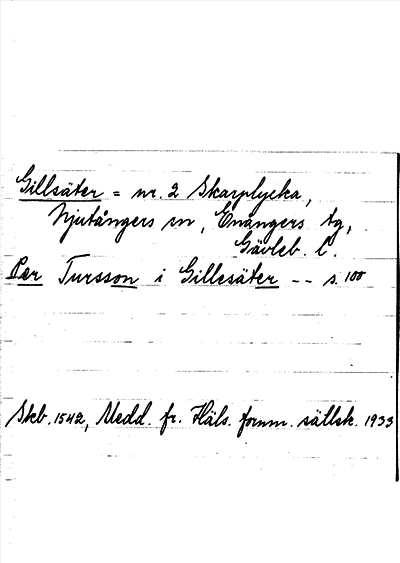 Gillsäter = nr. 2 Skarplycka,
Njutångers sn, Enångers tg,
Gävleb. l.
Per Tursson i Gillesäter -- s. 100
Skb. 1542, Medd. fr. Häls. fornm. sällsk. 1933